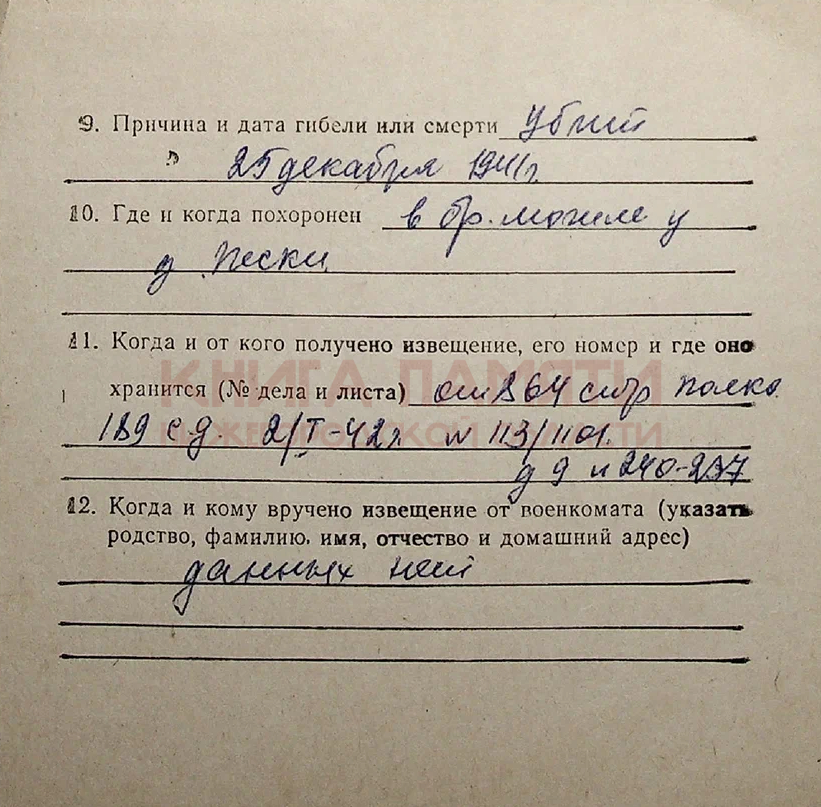 9. Причина и дата гибели или смерти убит
25 декабря 1941г.
10. Где и когда похоронен в бр. могиле у
д. Пески
11. Когда и от кого получено извещение, его номер и где оно
КНИГА ПАМЯТИ
хранится (№ дела и листа) от 864 стр полка
189 с.д. 2/I-42г. N 113/1101.
НИЖЕГОРОДСКОЙ ОБЛАСТИ
д 9 л 240-237
12. Когда и кому вручено извещение от военкомата (указать
родство, фамилию, имя, отчество и домашний адрес)
данных нет